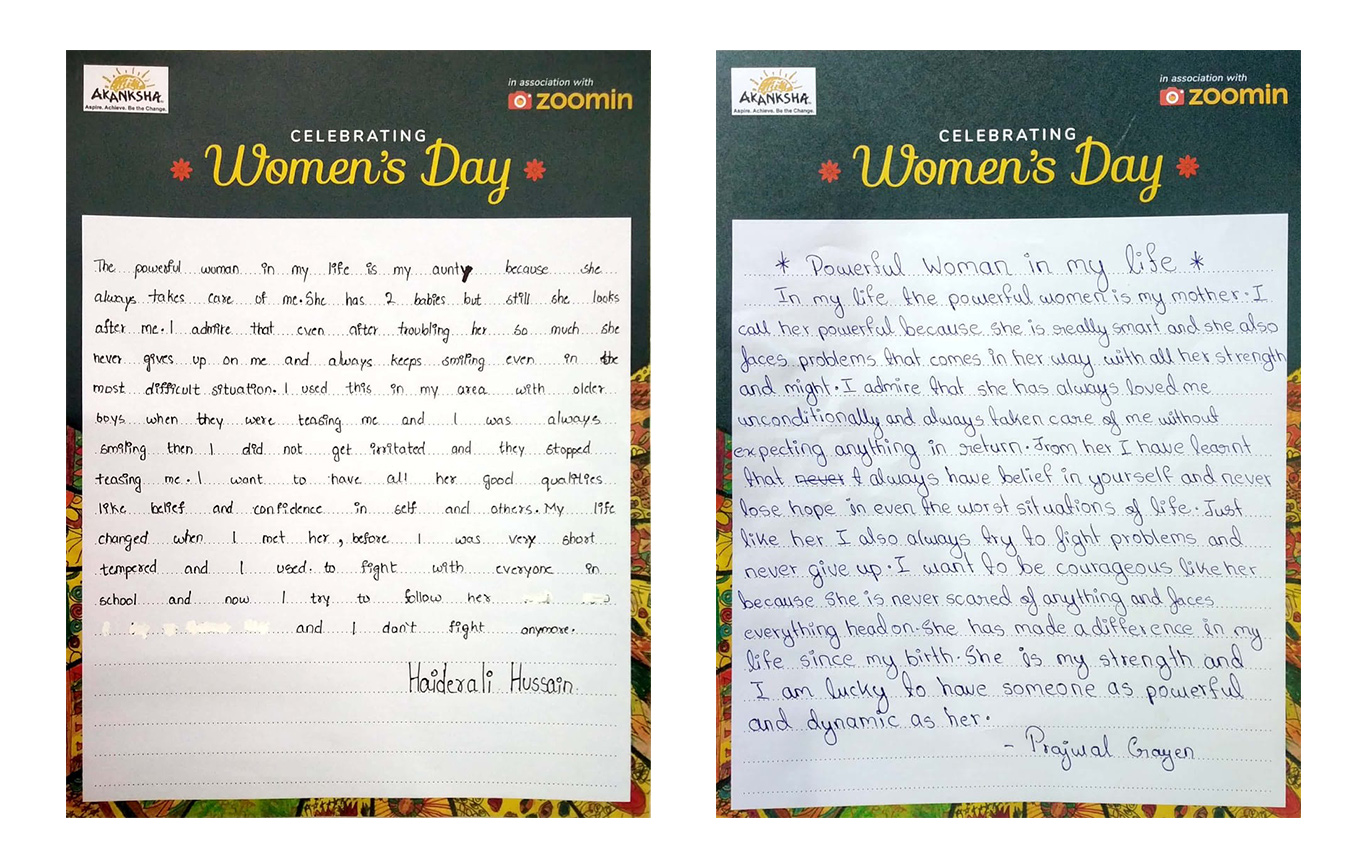 AKANKSHA
Aspire. Achieve. Be the Change.
in association with
zoomin
CELEBRATING
Women's Day
The powerful woman in my life is my aunty because she
always takes care of me. She has 2 babies but still she looks
after me. I admire that even after troubling her so much she
never gives up on me and always keeps smiling even in the
most difficult situation. I used this in my area with older
boys when they were teasing me and I was always
smiling then I did not get irritated and they stopped
teasing me. I want to have all her good qualities
like belief and confidence in self and others. My life
changed when I met her, before I was very short
tempered and I used to fight with everyone in
school and now I try to follow her
and I don't fight anymore.
Haiderali Hussain
AKANKSHA
Aspire. Achieve. Be the Change.
in association with
zoomin
CELEBRATING
Women's Day
* Powerful Woman in my life *
In my life the powerful women is my mother. I
call her powerful because she is really smart and she also
faces problems that comes in her way with all her strength
and might. I admire that she has always loved me
unconditionally and always taken care of me without
expecting anything in return. From her I have learnt
that never always have belief in yourself and never
lose hope in even the worst situations of life. Just
like her I also always try to fight problems and
never give up. I want to be courageous like her
because she is never scared of anything and faces
everything head on. She has made a difference in my
life since my birth. She is my strength and
I am lucky to have someone as powerful
and dynamic as her.
- Prajwal Gayen